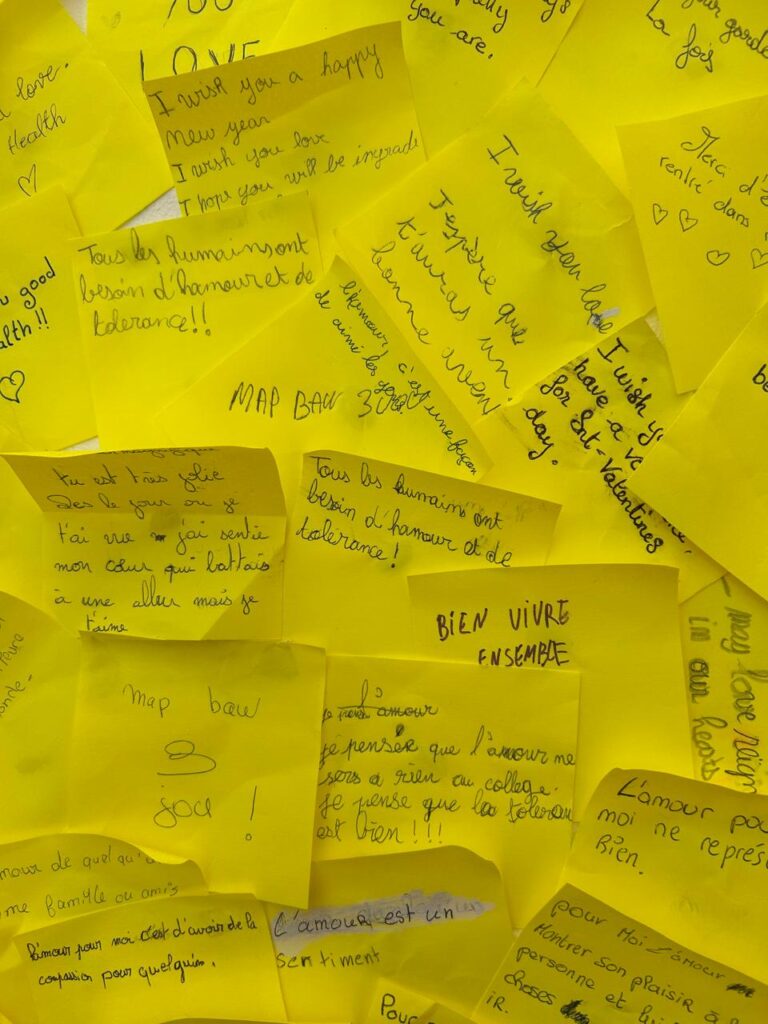 YOU
LOVE
you are.
La fois
love.
Health
I wish you a happy
New year
I wish you love
I hope you will be ingrade
I wish you love
J'espère que
t'auras un
bonne aven
Merci d'ê
rentré dans
good
alth!!
Tous les humains ont
besoin d'hamour et de
tolerance!!
l'humour, c'est une façon
de aimé les gens.
MAP BAW 3
I wish y
have a ve
for Snt-Valentines
day.
tu est très jolie
Des le jour ou je
t'ai vue j'ai sentie
mon cœur qui battais
à une allur mais je
t'aime
Tous les humains ont
besoin d'hamour et de
tolérance!
BIEN VIVRE
ENSEMBLE
may love
in our hearts
map baw
3
jou !
l'amour
je pensée que l'amour ne
sers a rien au college.
je pense que la toleran
est bien!!!
L'amour pou
moi ne représ
Rien.
mour de quelqu'
me famille ou amis
l'amour pour moi c'est d'avoir de la
compassion pour quelqu'un.
L'amour est un
sentiment
pour Moi L'amour
Montrer son plaisir à
personne et
choses
IR.
Pour